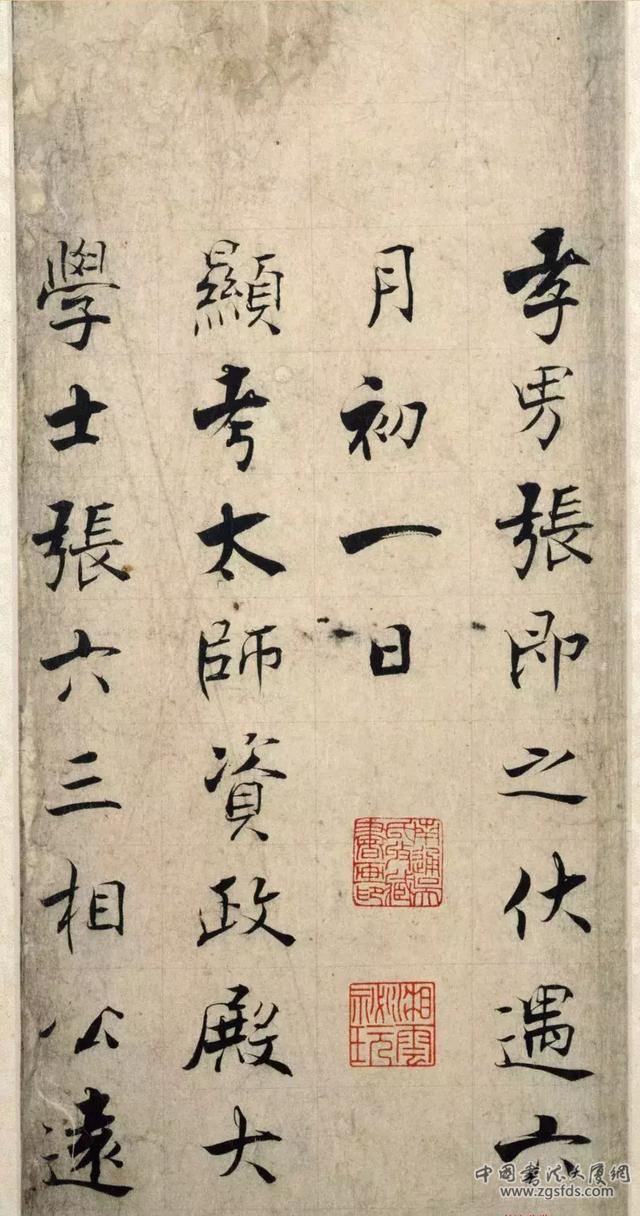 孝男張即之伏遇六
月初一日
顯考太師資政殿大
學士張六三相公遠
湘雲
秘玩
中國書法大廈網
www.zgsfds.com